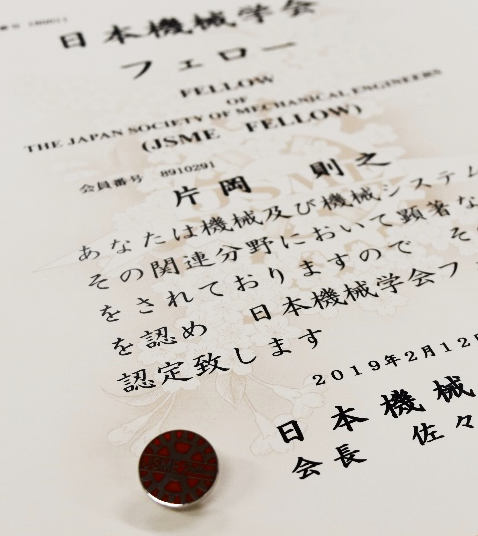 日本機械学会
フェロー
FELLOW
OF
THE JAPAN SOCIETY OF MECHANICAL ENGINEERS
(JSME FELLOW)
会員番号 8910291
片岡 則之
あなたは機械及び機械システム
その関連分野において顕著な
をされておりますので そ
を認め 日本機械学会フ
認定致します
2019年2月12
日本機械
会長 佐々
JSME